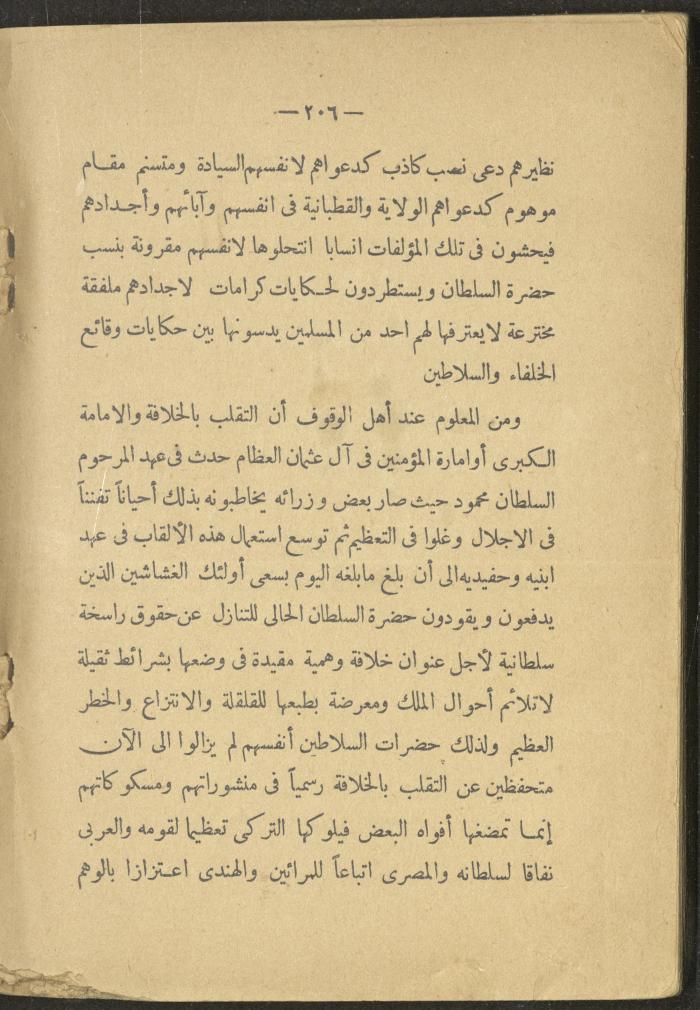 — ٢٠٦ —
نظيرهم دعى نصب كاذب كدعواهم لانفسهم السيادة ومتسنم مقام
موهوم كدعواهم الولاية والقطبانية فى انفسهم وآبائهم وأجدادهم
فيحشون فى تلك المؤلفات انسابا انتحلوها لانفسهم مقرونة بنسب
حضرة السلطان ويستطردون لحكايات كرامات لاجدادهم ملفقة
مخترعة لايعترفها لهم احد من المسلمين يدسونها بين حكايات وقائع
الخلفاء والسلاطين
ومن المعلوم عند أهل الوقوف أن التقلب بالخلافة والامامة
الكبرى أوامارة المؤمنين فى آل عثمان العظام حدث فى عهد المرحوم
السلطان محمود حيث صار بعض وزرائه يخاطبونه بذلك أحياناً تفنناً
فى الاجلال وغلوا فى التعظيم ثم توسع استعمال هذه الألقاب فى عهد
ابنيه وحفيديه الى أن بلغ مابلغه اليوم بسعى أولئك الغشاشين الذين
يدفعون ويقودون حضرة السلطان الحالى للتنازل عن حقوق راسخة
سلطانية لأجل عنوان خلافة وهمية مقيدة فى وضعها بشرائط ثقيلة
لاتلائم أحوال الملك ومعرضة بطبعها للقلقلة والانتزاع والخطر
العظيم ولذلك حضرات السلاطين أنفسهم لم يزالوا الى الآن
متحفظين عن التقلب بالخلافة رسمياً فى منشوراتهم ومسكوكاتهم
إنما تمضغها أفواه البعض فيلوكها التركى تعظيما لقومه والعربى
نفاقا لسلطانه والمصرى اتباعاً للمرائين والهندى اعتزازا بالوهم